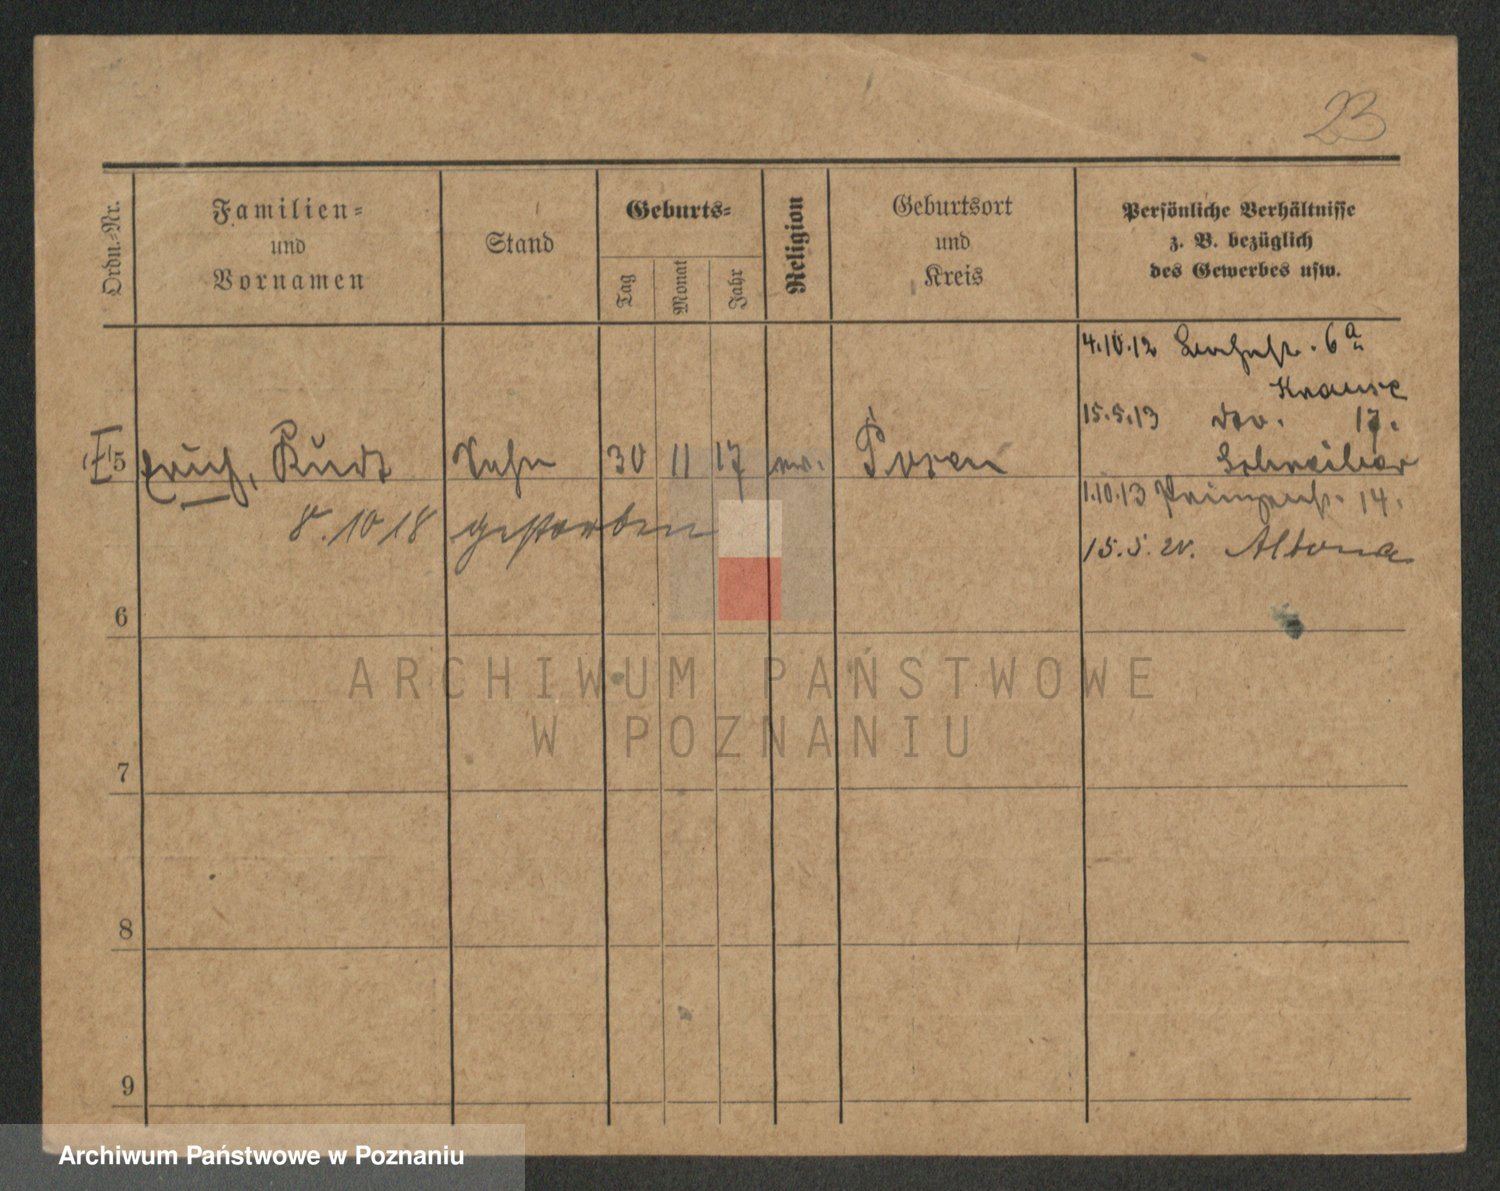 23
Ordn.-Nr.
Familien-
und
Vornamen
Stand
Geburts-
Tag
Monat
Jahr
Religion
Geburtsort
und
Kreis
Persönliche Verhältnisse
z. B. bezüglich
des Gewerbes usw.
4.10.12 6a
Krause
15.5.13 17.
Schreiber
5 Erich, Kurt Sohn 30 11 17 ev. Posen
1.10.13 Prinzenstr. 14.
8.10 18 gestorben
15.5.20. Altona
6
7
8
9
ARCHIWUM PAŃSTWOWE
W POZNANIU
Archiwum Państwowe w Poznaniu